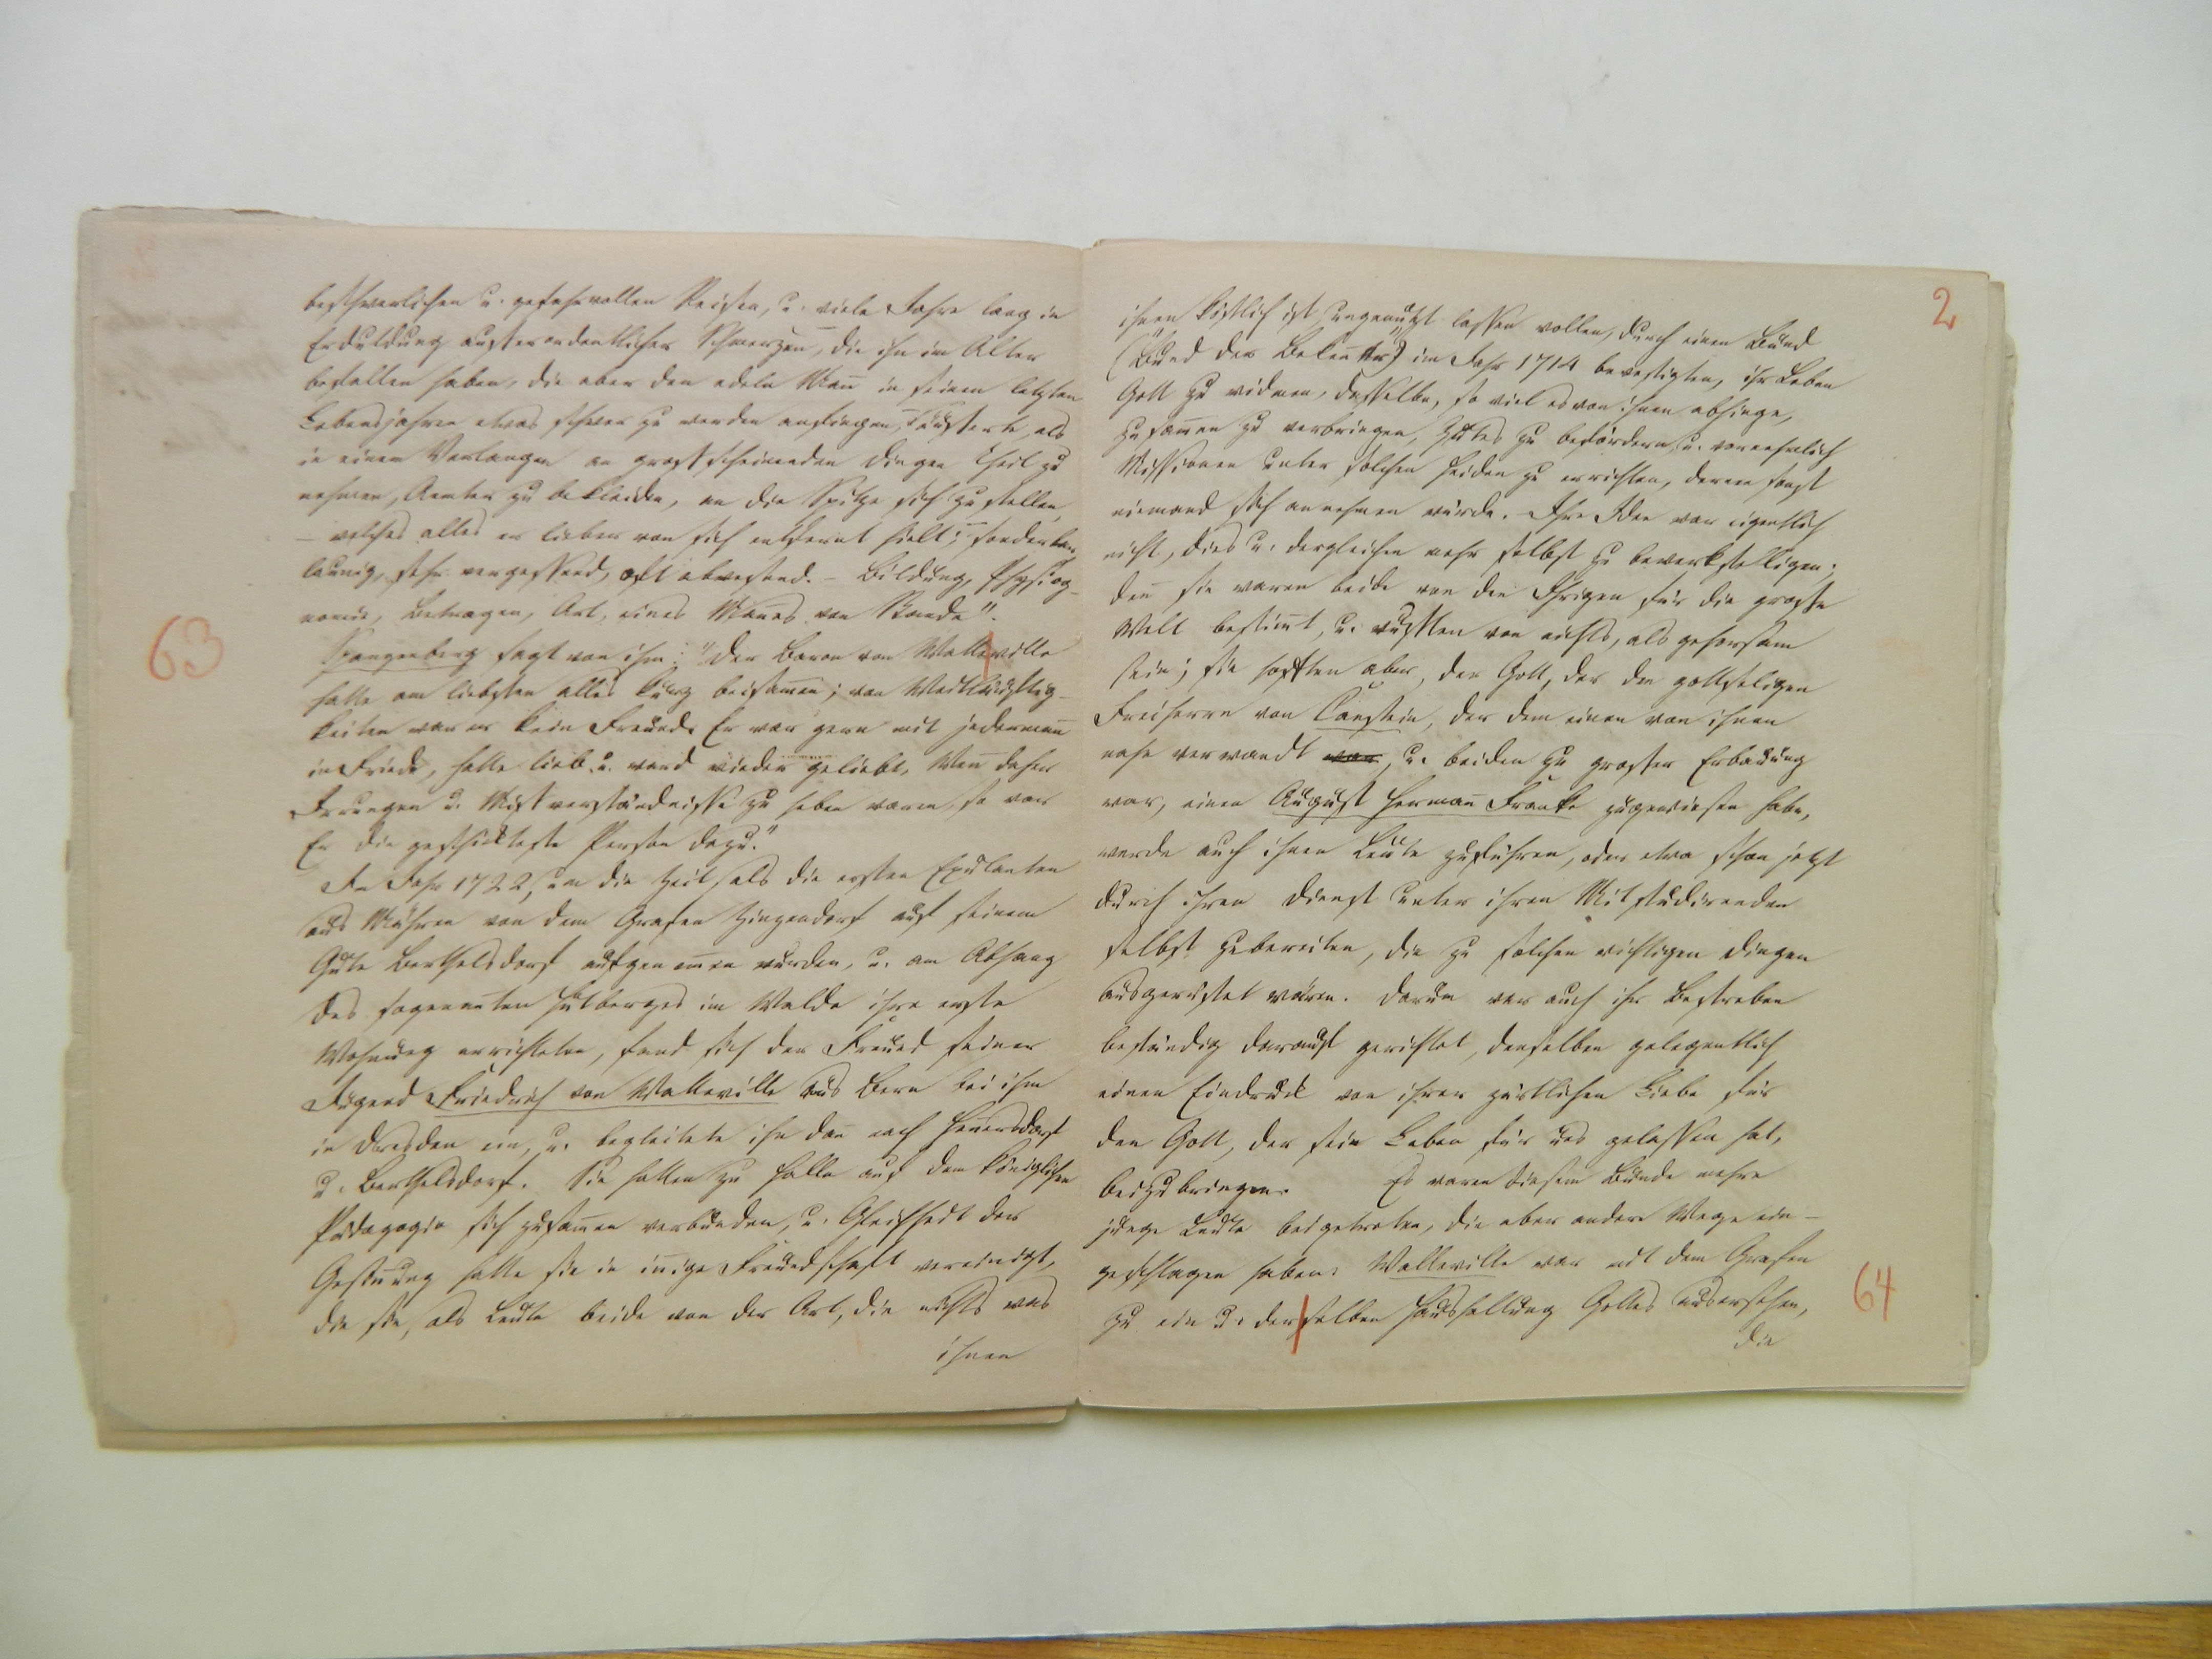 beschwerlichen u. gefahrvollen Reisen, u. viele Jahre lang in
Erduldung ausserordentlicher Schmerzen, die ihn im Alter
befallen haben, die aber den edeln Mañ in seinen letzten
Lebensjahren etwas schwer zu werden anfingen, äusserte, als
in einem Verlangen an grossscheinenden Dingen Theil zu
nehmen, Aemter zu bekleiden, an die Spitze sich zu stellen,
– welches alles er lieber von sich entfernt hielt; sonderbar,
launig, sehr vergessend, oft abwesend. – Bildung, Physiog-
nomie, Betragen, Art, eines Mañes von Stande".
63
Spangenberg sagt von ihm: "Der Baron von Watteville
hatte am liebsten alles kurz beisam̄en; von Weitläuftig-
keiten war er kein Freund. Er war gern mit jedermañ
in Friede, hatte lieb u. ward wieder geliebt. Weñ daher
Irrungen u. Missverständnisse zu heben waren, so war
Er die geschickteste Person dazu."
Im Jahr 1722, um die Zeit, als die ersten Exulanten
aus Mähren von dem Grafen Zinzendorf auf seinem
Gute Berthelsdorf aufgenom̄en wurden, u. am Abhang
des sogenañten Hutberges im Walde ihre erste
Wohnung errichteten, fand sich der Freund seiner
Jugend Friedrich von Watteville aus Bern bei ihm
in Dresden ein, u. begleitete ihn dañ nach Hennersdorf
u. Berthelsdorf. Sie hatten zu Halle auf dem Königlichen
Pädagogio sich zusam̄en verbunden, u. Gleichheit der
Gesiñung hatte sie in iñige Freundschaft vereinigt,
die sie, als Leute beide von der Art, die nichts was
ihnen
2
ihnen köstlich ist ungenützt lassen wollen, durch einen Bund
(Bund der Bekeñer) im Jahr 1714 bevestigten, ihr Leben
Gott zu widmen, dasselbe, so viel es von ihnen abhinge,
zusam̄en zu verbringen, Gutes zu befördern u. vornehmlich
Missionen unter solchen Heiden zu errichten, deren sonst
niemand sich annehmen würde. Ihre Idee war eigentlich
nicht, dies u. dergleichen mehr selbst zu bewerkstelligen;
deñ sie waren beide von den Ihrigen für die grosse
Welt bestim̄t, u. wussten von nichts, als gehorsam
sein; sie hofften aber, der Gott, der den gottseligen
Freiherrn von Canstein, der dem einen von ihnen
nahe verwandt war, u. beiden zu grosser Erbauung
war, einen August Hermañ Franke zugewiesen habe,
werde auch ihnen Leute zuführen, oder etwa schon jetzt
durch ihren Dienst unter ihren Mitstudirenden
selbst zubereiten, die zu solchen wichtigen Dingen
ausgerüstet wären. Darum war auch ihr Bestreben
beständig darauf gerichtet, denselben gelegentlich
einen Eindruck von ihrer zärtlichen Liebe für
den Gott, der sein Leben für uns gelassen hat,
beizubringen. Es waren diesem Bunde mehre
junge Leute beigetreten, die aber andere Wege ein-
geschlagen haben. Watteville war mit dem Grafen
zu ein u. derselben Haushaltung Gottes ausersehen,
64
die